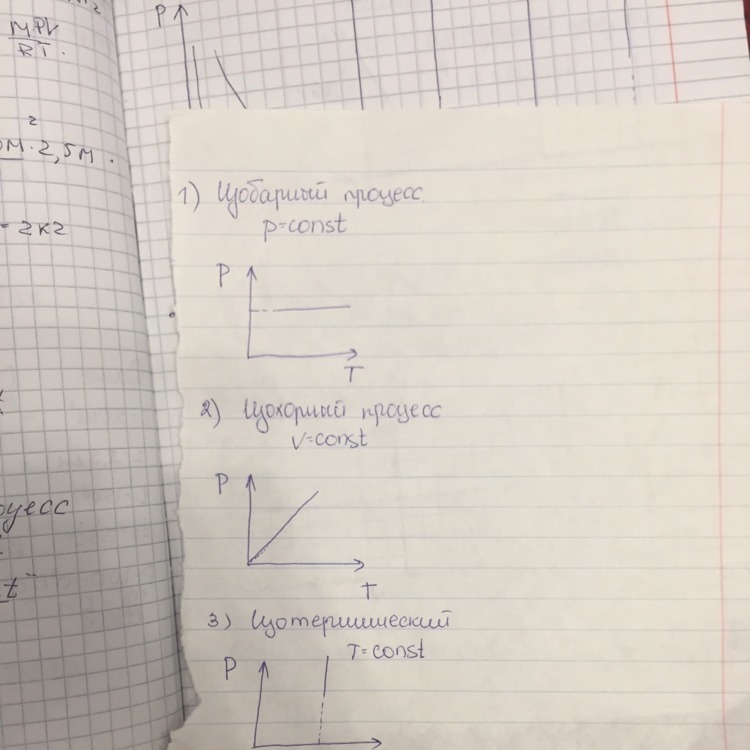 MPV
RT.
P
2
·2,5м.
2кг
1) Изобарный процесс
p=const
P
T
2) Изохорный процесс
V=const
P
T
3) Изотермический
T=const
P